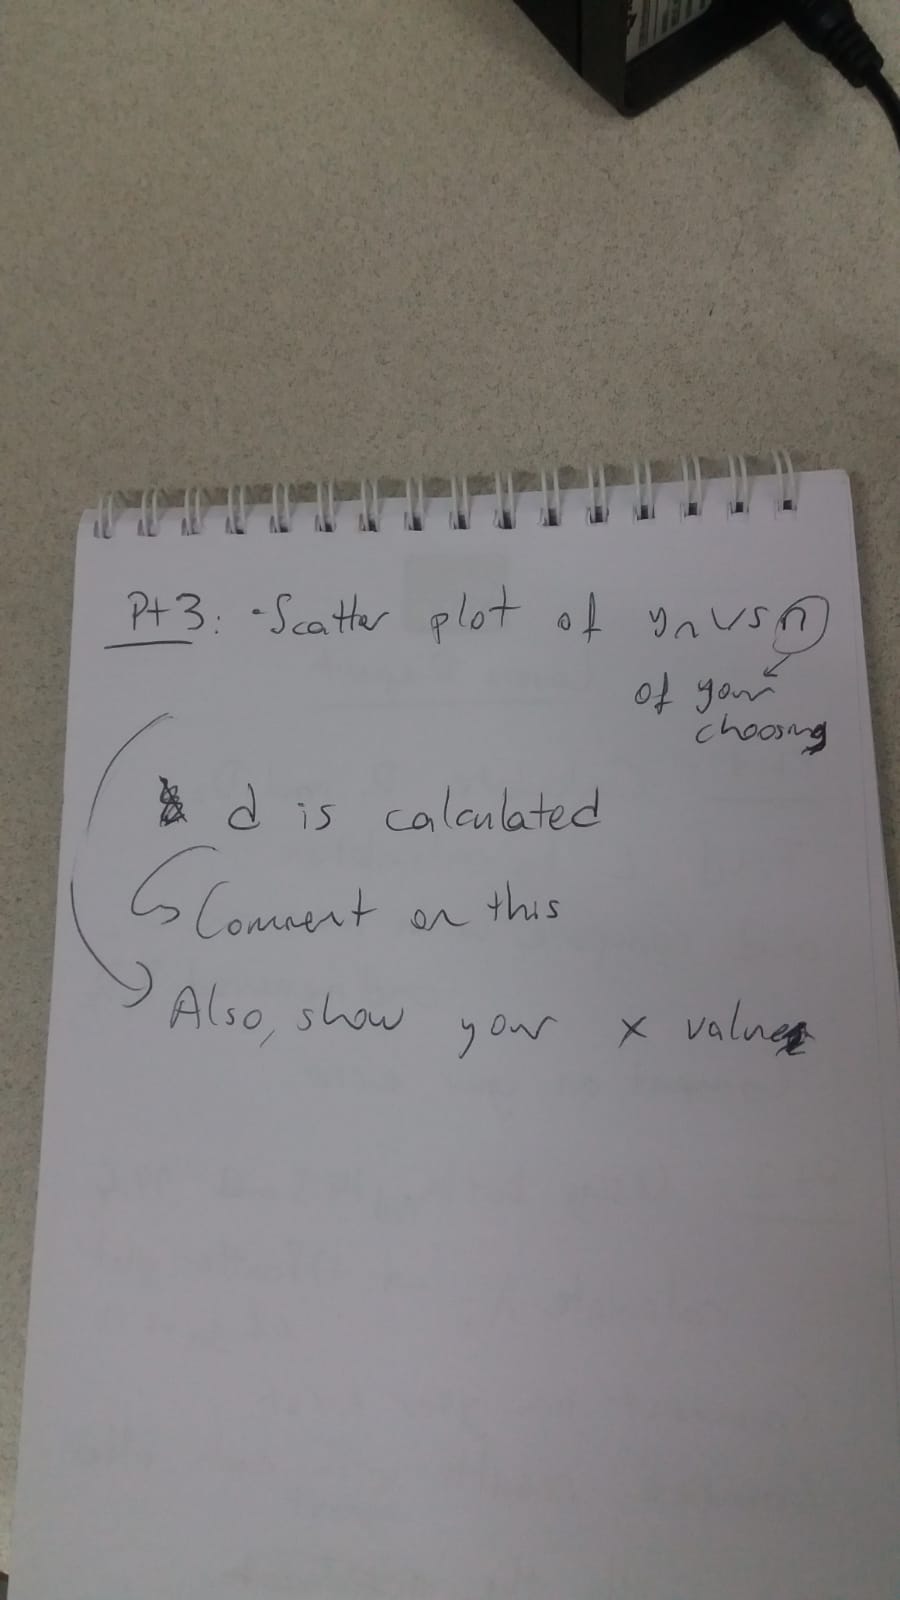 Pt 3: - Scatter plot of yn vs n
of your
choosing
d is calculated
Comment on this
Also, show your x values